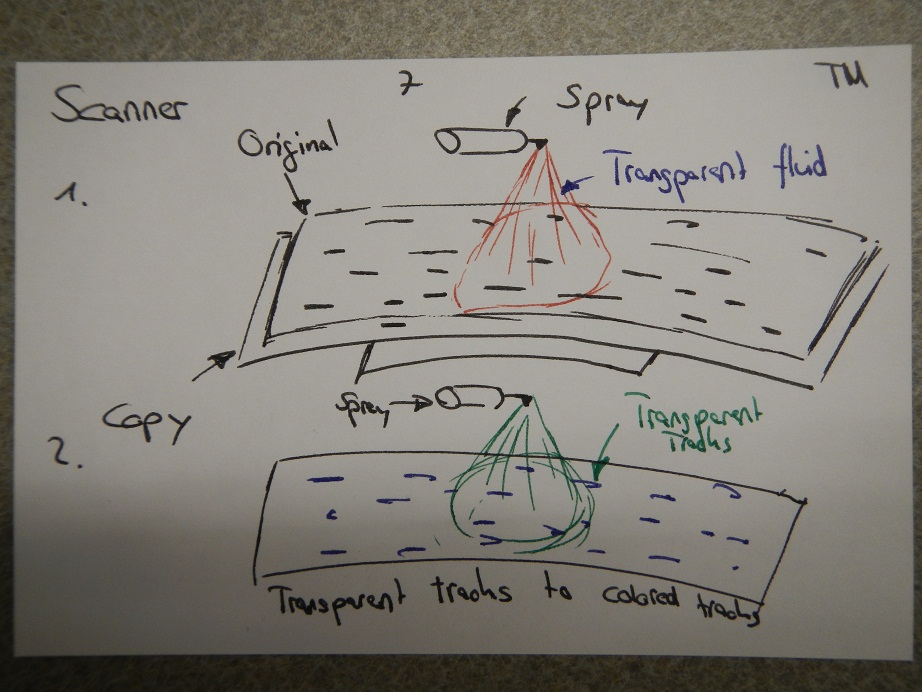 Scanner
7
Spray
TM
Original
1.
Transparent fluid
Copy
Spray
2.
Transparent
Tracks
Transparent tracks to colored tracks